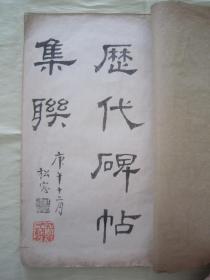 歷代碑帖
集聯
庚午十二月
松窗